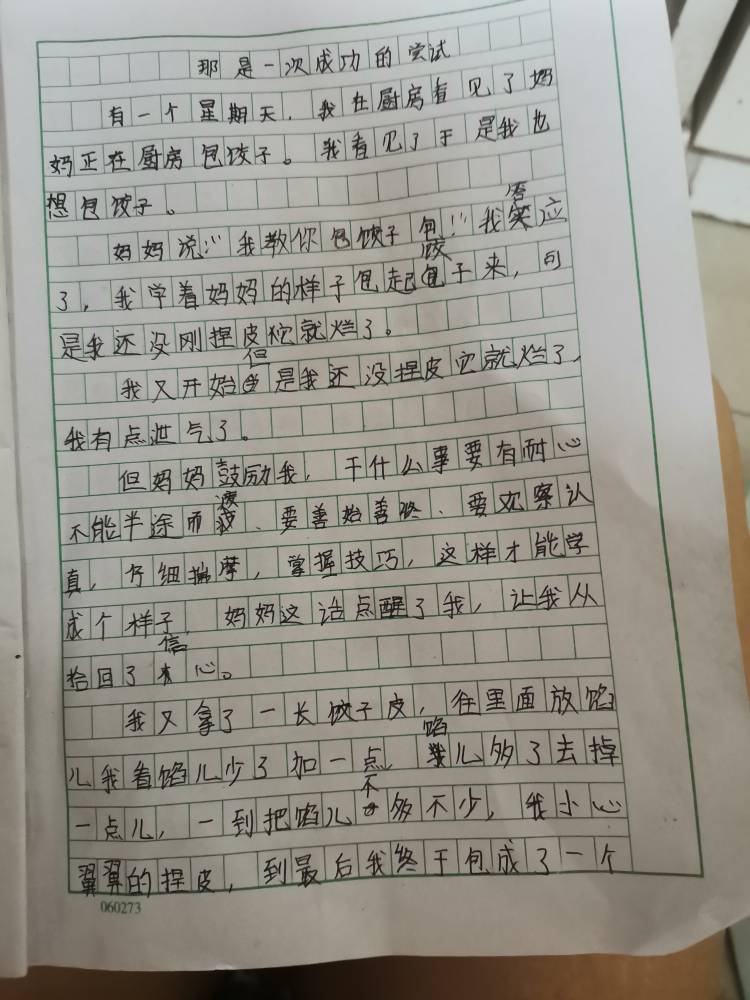 那是一次成功的尝试
有一个星期天，我在厨房看见了妈
妈正在厨房包饺子。我看见了于是我也
想包饺子。
妈妈说：“我教你包饺子包！”我答应
了，我学着妈妈的样子包起饺子来，可
是我还没刚捏皮它就烂了。
我又开始但是我还没捏皮它就烂了，
我有点泄气了。
但妈妈鼓励我，干什么事要有耐心
不能半途而废、要善始善终、要观察认
真，仔细揣摩，掌握技巧，这样才能学
成个样子，妈妈这话点醒了我，让我从
拾回了信心。
我又拿了一长饺子皮，往里面放馅
儿我看馅儿少了加一点，馅儿多了去掉
一点儿，一到把馅儿不多不少，我小心
翼翼的捏皮，到最后我终于包成了一个
060273